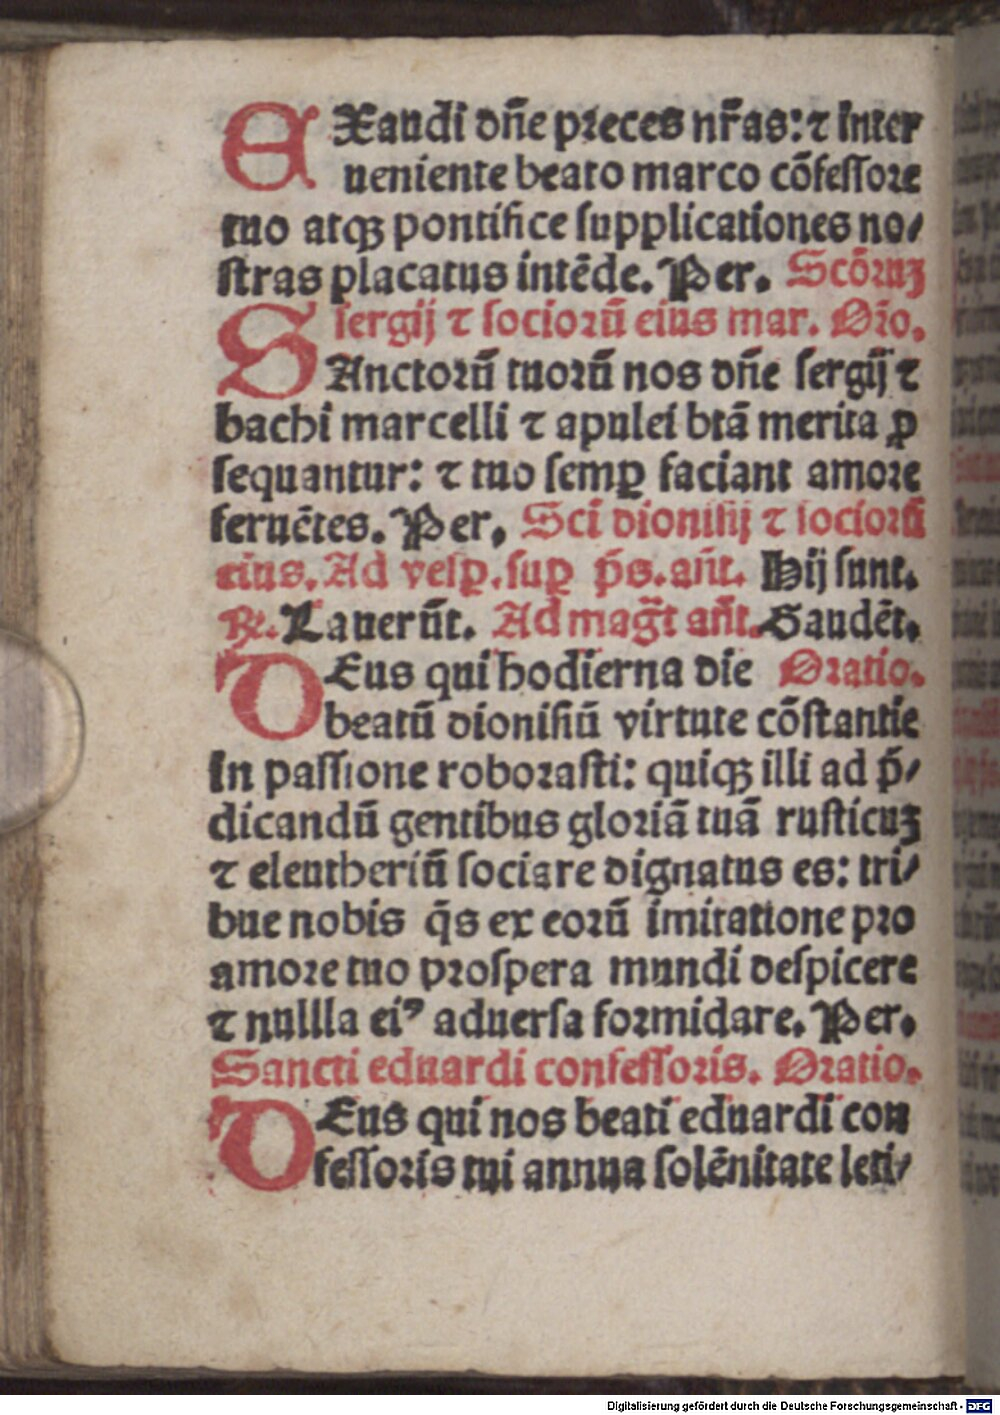 EXaudi dñe preces nr̃as: ⁊ inter
ueniente beato marco cõfessore
tuo atqꝫ pontifice supplicationes no/
stras placatus intẽde. Per. Scõruꝫ
sergij ⁊ sociorũ eius mar. Orõ.
SAnctorũ tuorũ nos dñe sergij ⁊
bachi marcelli ⁊ apulei btã merita ꝓ
sequantur: ⁊ tuo semꝑ faciant amore
feruẽtes. Per. Sci dionisij ⁊ sociorũ
eius. Ad vesꝑ. suꝑ p̃s. añt. Hij sunt.
℞. Lauerũt. Ad mag̃t añt. Gaudẽt.
DEus qui hodierna die Oratio.
beatũ dionisiũ virtute cõstantie
in passione roborasti: quiqꝫ illi ad p̃/
dicandũ gentibus gloriã tuã rusticuꝫ
⁊ eleutheriũ sociare dignatus es: tri/
bue nobis q̃s ex eorũ imitatione pro
amore tuo prospera mundi despicere
⁊ nullla eiꝰ aduersa formidare. Per.
Sancti eduardi confessoris. Oratio.
DEus qui nos beati eduardi con
fessoris tui annua solẽnitate leti/
Digitalisierung gefördert durch die Deutsche Forschungsgemeinschaft - DFG